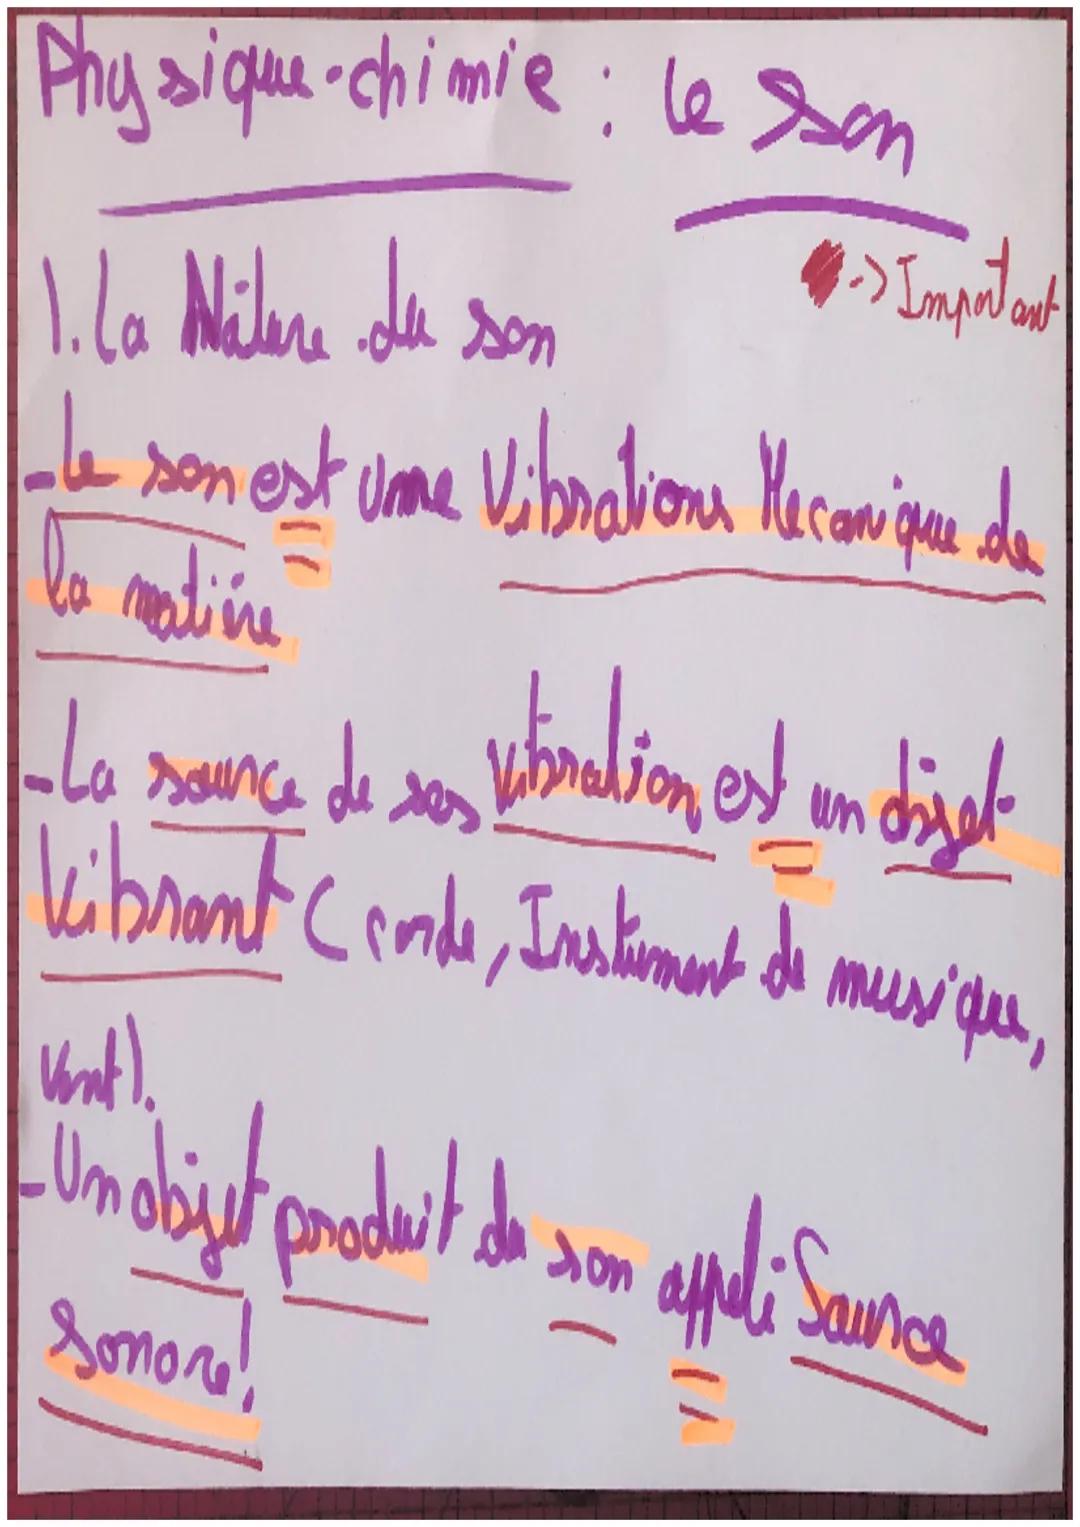 Physique-chimie : le son
-> Important
1. La Nature du son
- Le son est une Vibrations Mecanique de
la matière
- La source de ses vibration est un objet
Vibrant ( corde, Instrument de musique,
vent).
- Un objet produit du son appeli Source
Sonore!